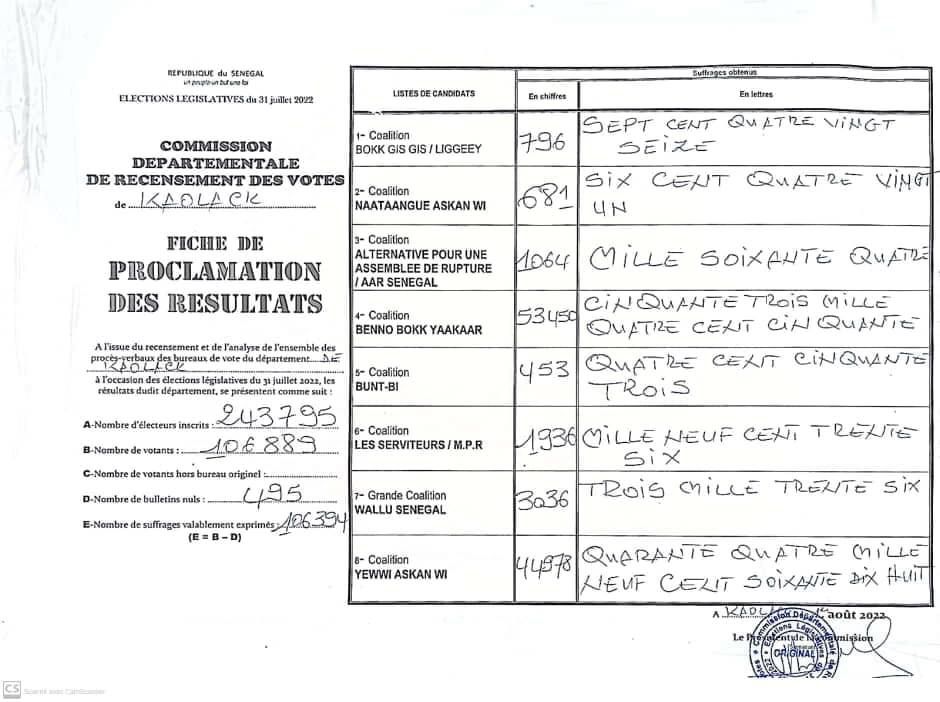 REPUBLIQUE du SENEGAL
un peuple un but une foi
ELECTIONS LEGISLATIVES du 31 juillet 2022
COMMISSION
DEPARTEMENTALE
DE RECENSEMENT DES VOTES
de KAOLACK
FICHE DE
PROCLAMATION
DES RESULTATS
A l'issue du recensement et de l'analyse de l'ensemble des
procès-verbaux des bureaux de vote du département DE
KAOLACK
à l'occasion des élections législatives du 31 juillet 2022, les
résultats dudit département, se présentent comme suit :
A-Nombre d'électeurs inscrits : 243795
B-Nombre de votants : 106889
C-Nombre de votants hors bureau originel :
D-Nombre de bulletins nuls : 495
E-Nombre de suffrages valablement exprimés : 106394
(E = B – D)
LISTES DE CANDIDATS
Suffrages obtenus
En chiffres
En lettres
1- Coalition
BOKK GIS GIS / LIGGEEY
796
SEPT CENT QUATRE VINGT
SEIZE
2- Coalition
NAATAANGUE ASKAN WI
681
SIX CENT QUATRE VINGT
UN
3- Coalition
ALTERNATIVE POUR UNE
ASSEMBLEE DE RUPTURE
/ AAR SENEGAL
1064
MILLE SOIXANTE QUATRE
4- Coalition
BENNO BOKK YAAKAAR
53450
CINQUANTE TROIS MILLE
QUATRE CENT CINQUANTE
5- Coalition
BUNT-BI
453
QUATRE CENT CINQUANTE
TROIS
6- Coalition
LES SERVITEURS / M.P.R
1936
MILLE NEUF CENT TRENTE
SIX
7- Grande Coalition
WALLU SENEGAL
3036
TROIS MILLE TRENTE SIX
8- Coalition
YEWWI ASKAN WI
44978
QUARANTE QUATRE MILLE
NEUF CENT SOIXANTE DIX HUIT
A KAOLACK 1er août 2022
Le Président de la Commission
ORIGINAL
CS Scanné avec CamScanner